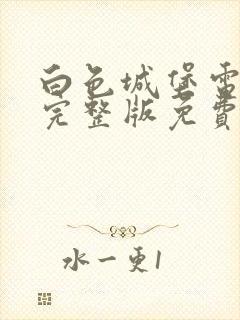 白色城堡電
完整版免費
水一更1